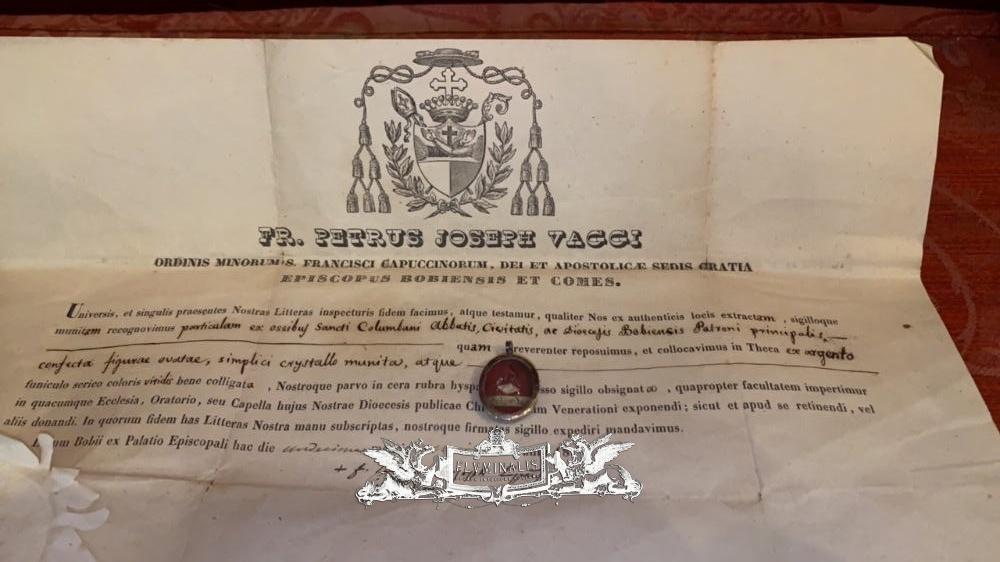 FR. PETRUS JOSEPH VAGGI
ORDINIS MINORUM S. FRANCISCI CAPUCCINORUM, DEI ET APOSTOLICÆ SEDIS GRATIA
EPISCOPUS BOBIENSIS ET COMES.
Universis, et singulis praesentes Nostras Litteras inspecturis fidem facimus, atque testamur, qualiter Nos ex authenticis locis extractam, sigilloque
munitam recognovimus particulam ex ossibus Sancti Columbani Abbatis, Civitatis, ac Diocesis Bobiensis Patroni principalis,
quam reverenter reposuimus, et collocavimus in Theca ex argento
confecta figurae ovatae, simplici crystallo munita, atque
funiculo serico coloris viridis bene colligata, Nostroque parvo in cera rubra sigillo obsignatae, quapropter facultatem impertimur
in quacumque Ecclesia, Oratorio, seu Capella hujus Nostrae Dioecesis publicae Venerationi exponendi; sicut et apud se retinendi, vel
aliis donandi. In quorum fidem has Litteras Nostra manu subscriptas, nostroque sigillo expediri mandavimus.
Bobii ex Palatio Episcopali hac die
ELYMINALIS